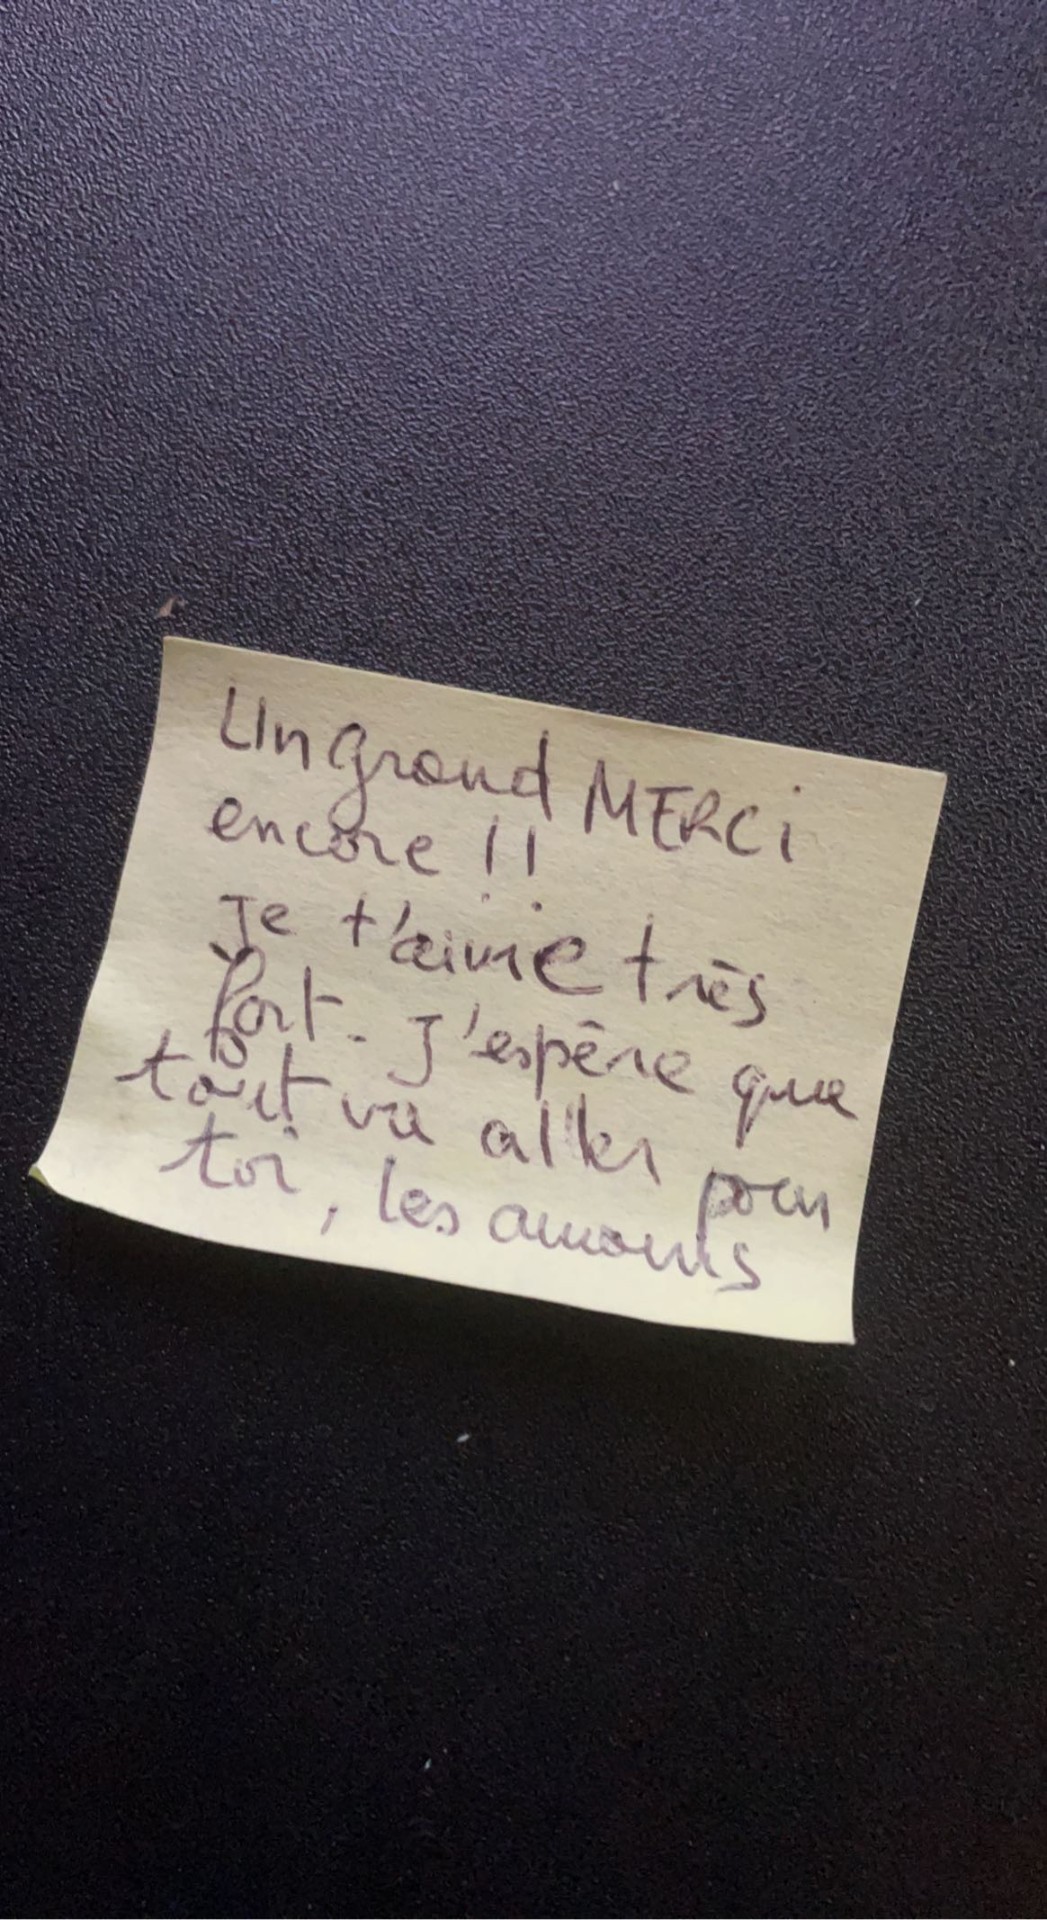 Un grand MERCi
encore !!
Je t'aime très
fort. J'espère que
tout va aller pour
toi, les amours